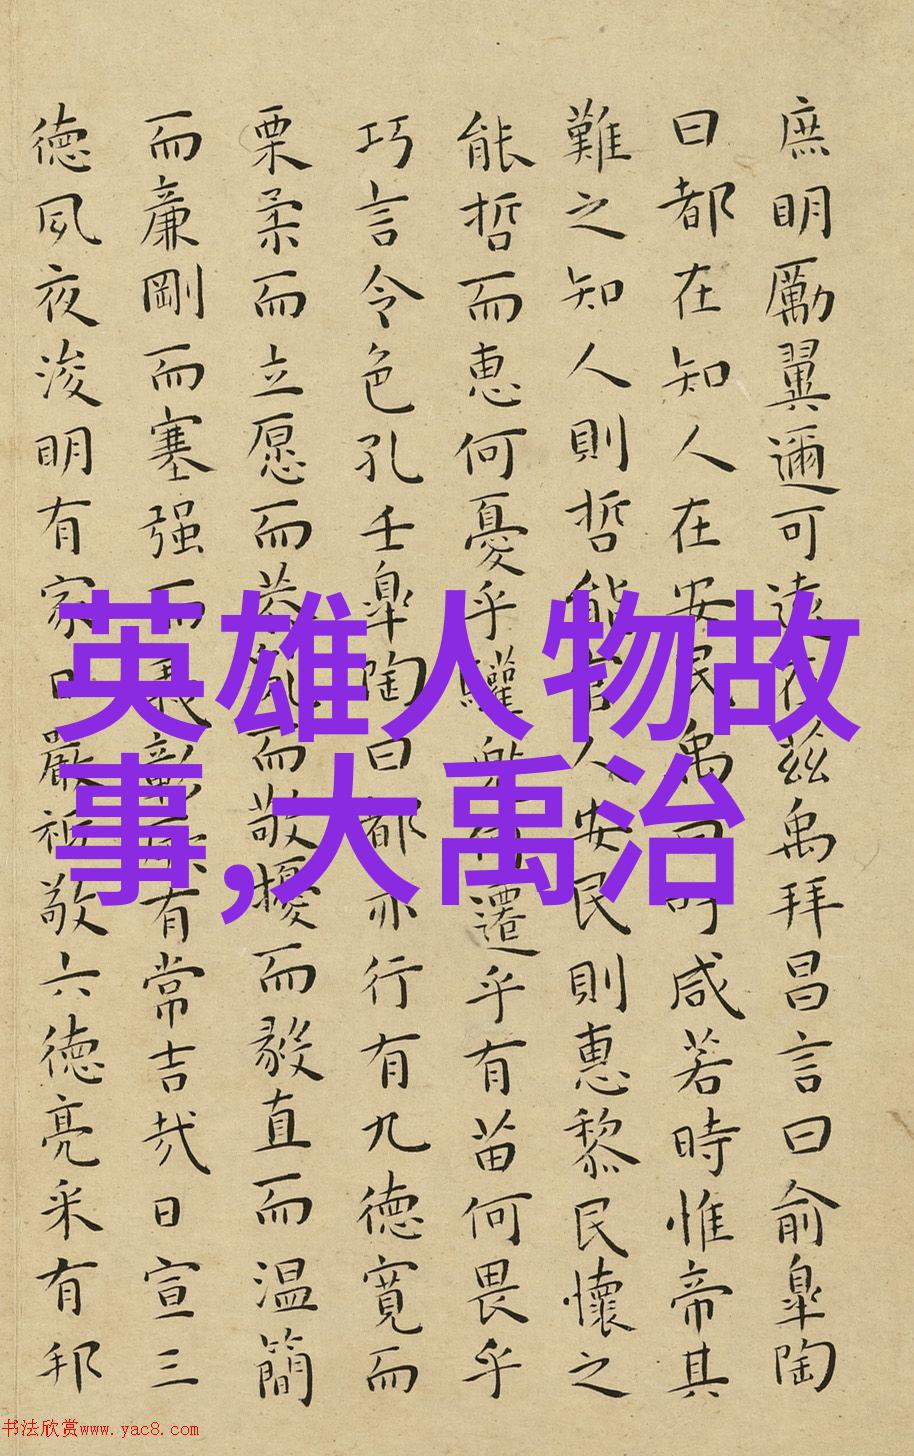 庶明厲翼邇可遠在茲禹拜昌言曰俞皐陶
曰都在知人在安民禹曰吁咸若時惟帝其
難之知人則哲能官人安民則惠黎民懷之
能哲而恵何憂乎驩兜何遷乎有苗何畏乎
巧言令色孔壬皐陶曰都亦行有九德寛而
栗柔而立愿而恭亂而敬擾而毅直而温簡
而廉剛而塞强而義彰厥有常吉哉日宣三
德夙夜浚明有家日嚴祗敬六德亮采有邦
英雄人物故
事,大禹治
书法欣赏www.yac8.com